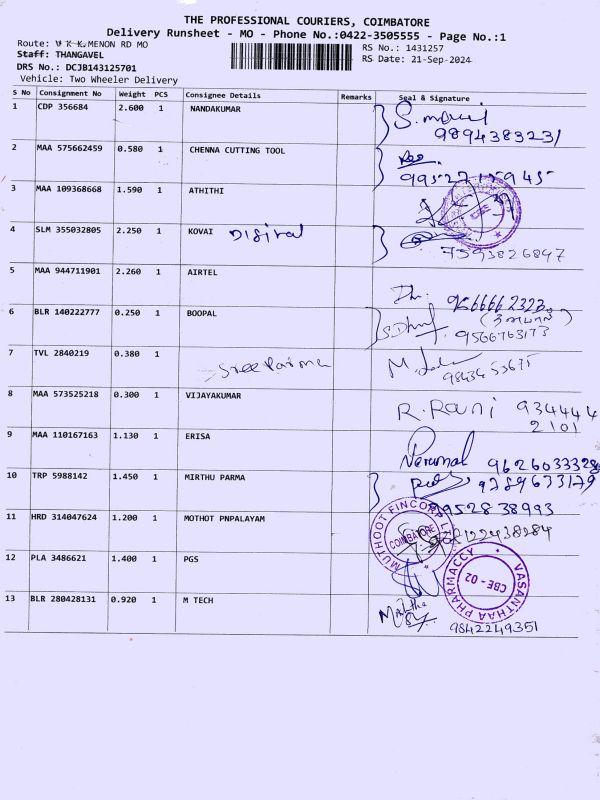 THE PROFESSIONAL COURIERS, COIMBATORE
Delivery Runsheet - MO - Phone No.:0422-3505555 - Page No.:1
Route: V K K MENON RD MO
RS No.: 1431257
Staff: THANGAVEL
RS Date: 21-Sep-2024
DRS No.: DCJB143125701
Vehicle: Two Wheeler Delivery
S No Consignment No Weight PCS Consignee Details Remarks Seal & Signature
1 CDP 356684 2.600 1 NANDAKUMAR
9894383231
2 MAA 575662459 0.580 1 CHENNA CUTTING TOOL
3 MAA 109368668 1.590 1 ATHITHI
4 SLM 355032805 2.250 1 KOVAI Digital
7593826847
5 MAA 944711901 2.260 1 AIRTEL
6 BLR 140222777 0.250 1 BOOPAL
9566763173
7 TVL 2840219 0.380 1 Sree Parma
9843453675
8 MAA 573525218 0.300 1 VIJAYAKUMAR R. Rani 934444
2101
9 MAA 110167163 1.130 1 ERISA
Perumal 9626033328
10 TRP 5988142 1.450 1 MIRTHU PARMA 9789633179
9952838993
11 HRD 314047624 1.200 1 MOTHOT PNPALAYAM
MUTHOOT FINCORP LTD
COIMBATORE
12 PLA 3486621 1.400 1 PGS
VASANTHAA PHARMACCY
CBE - 02
13 BLR 280428131 0.920 1 M TECH
9842249351